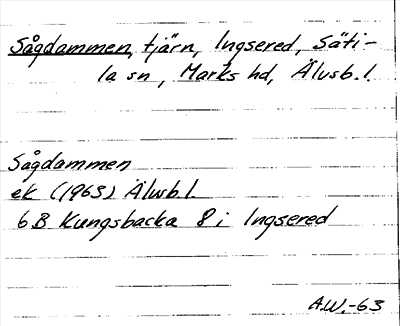 Sågdammen, tjärn, Ingsered, Säti-
la sn, Marks hd, Älvsb.l.
Sågdammen
ek (1963) Älvsb.l.
6B Kungsbacka 8i Ingsered
A.W.-63